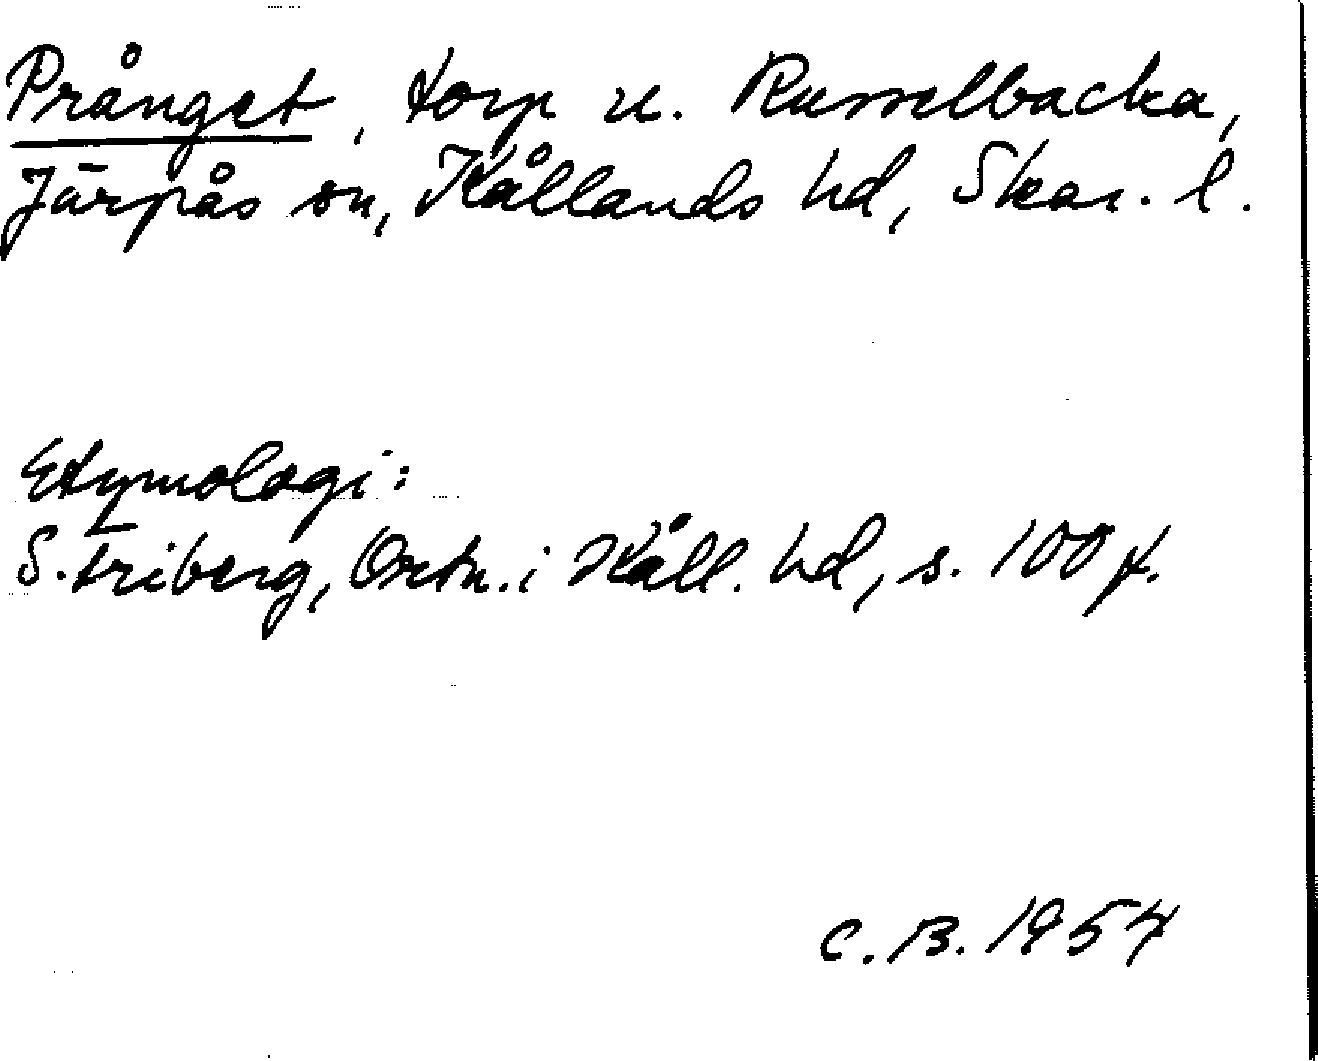 Prånget, torp u. Russelbacka,
Järpås sn, Kållands hd, Skar. l.
Etymologi:
S. Friberg, Ortn. i Kåll. hd, s. 100 f.
C. B. 1954